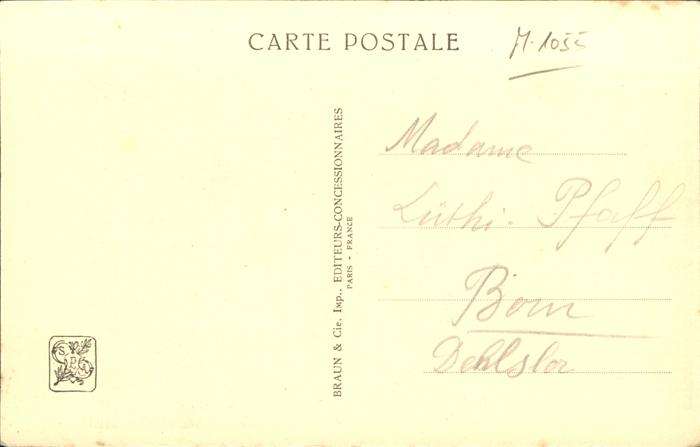 CARTE POSTALE
M. 1055
BRAUN & Cie, Imp., EDITEURS-CONCESSIONNAIRES
PARIS - FRANCE
Madame
Lüthi-Pfaff